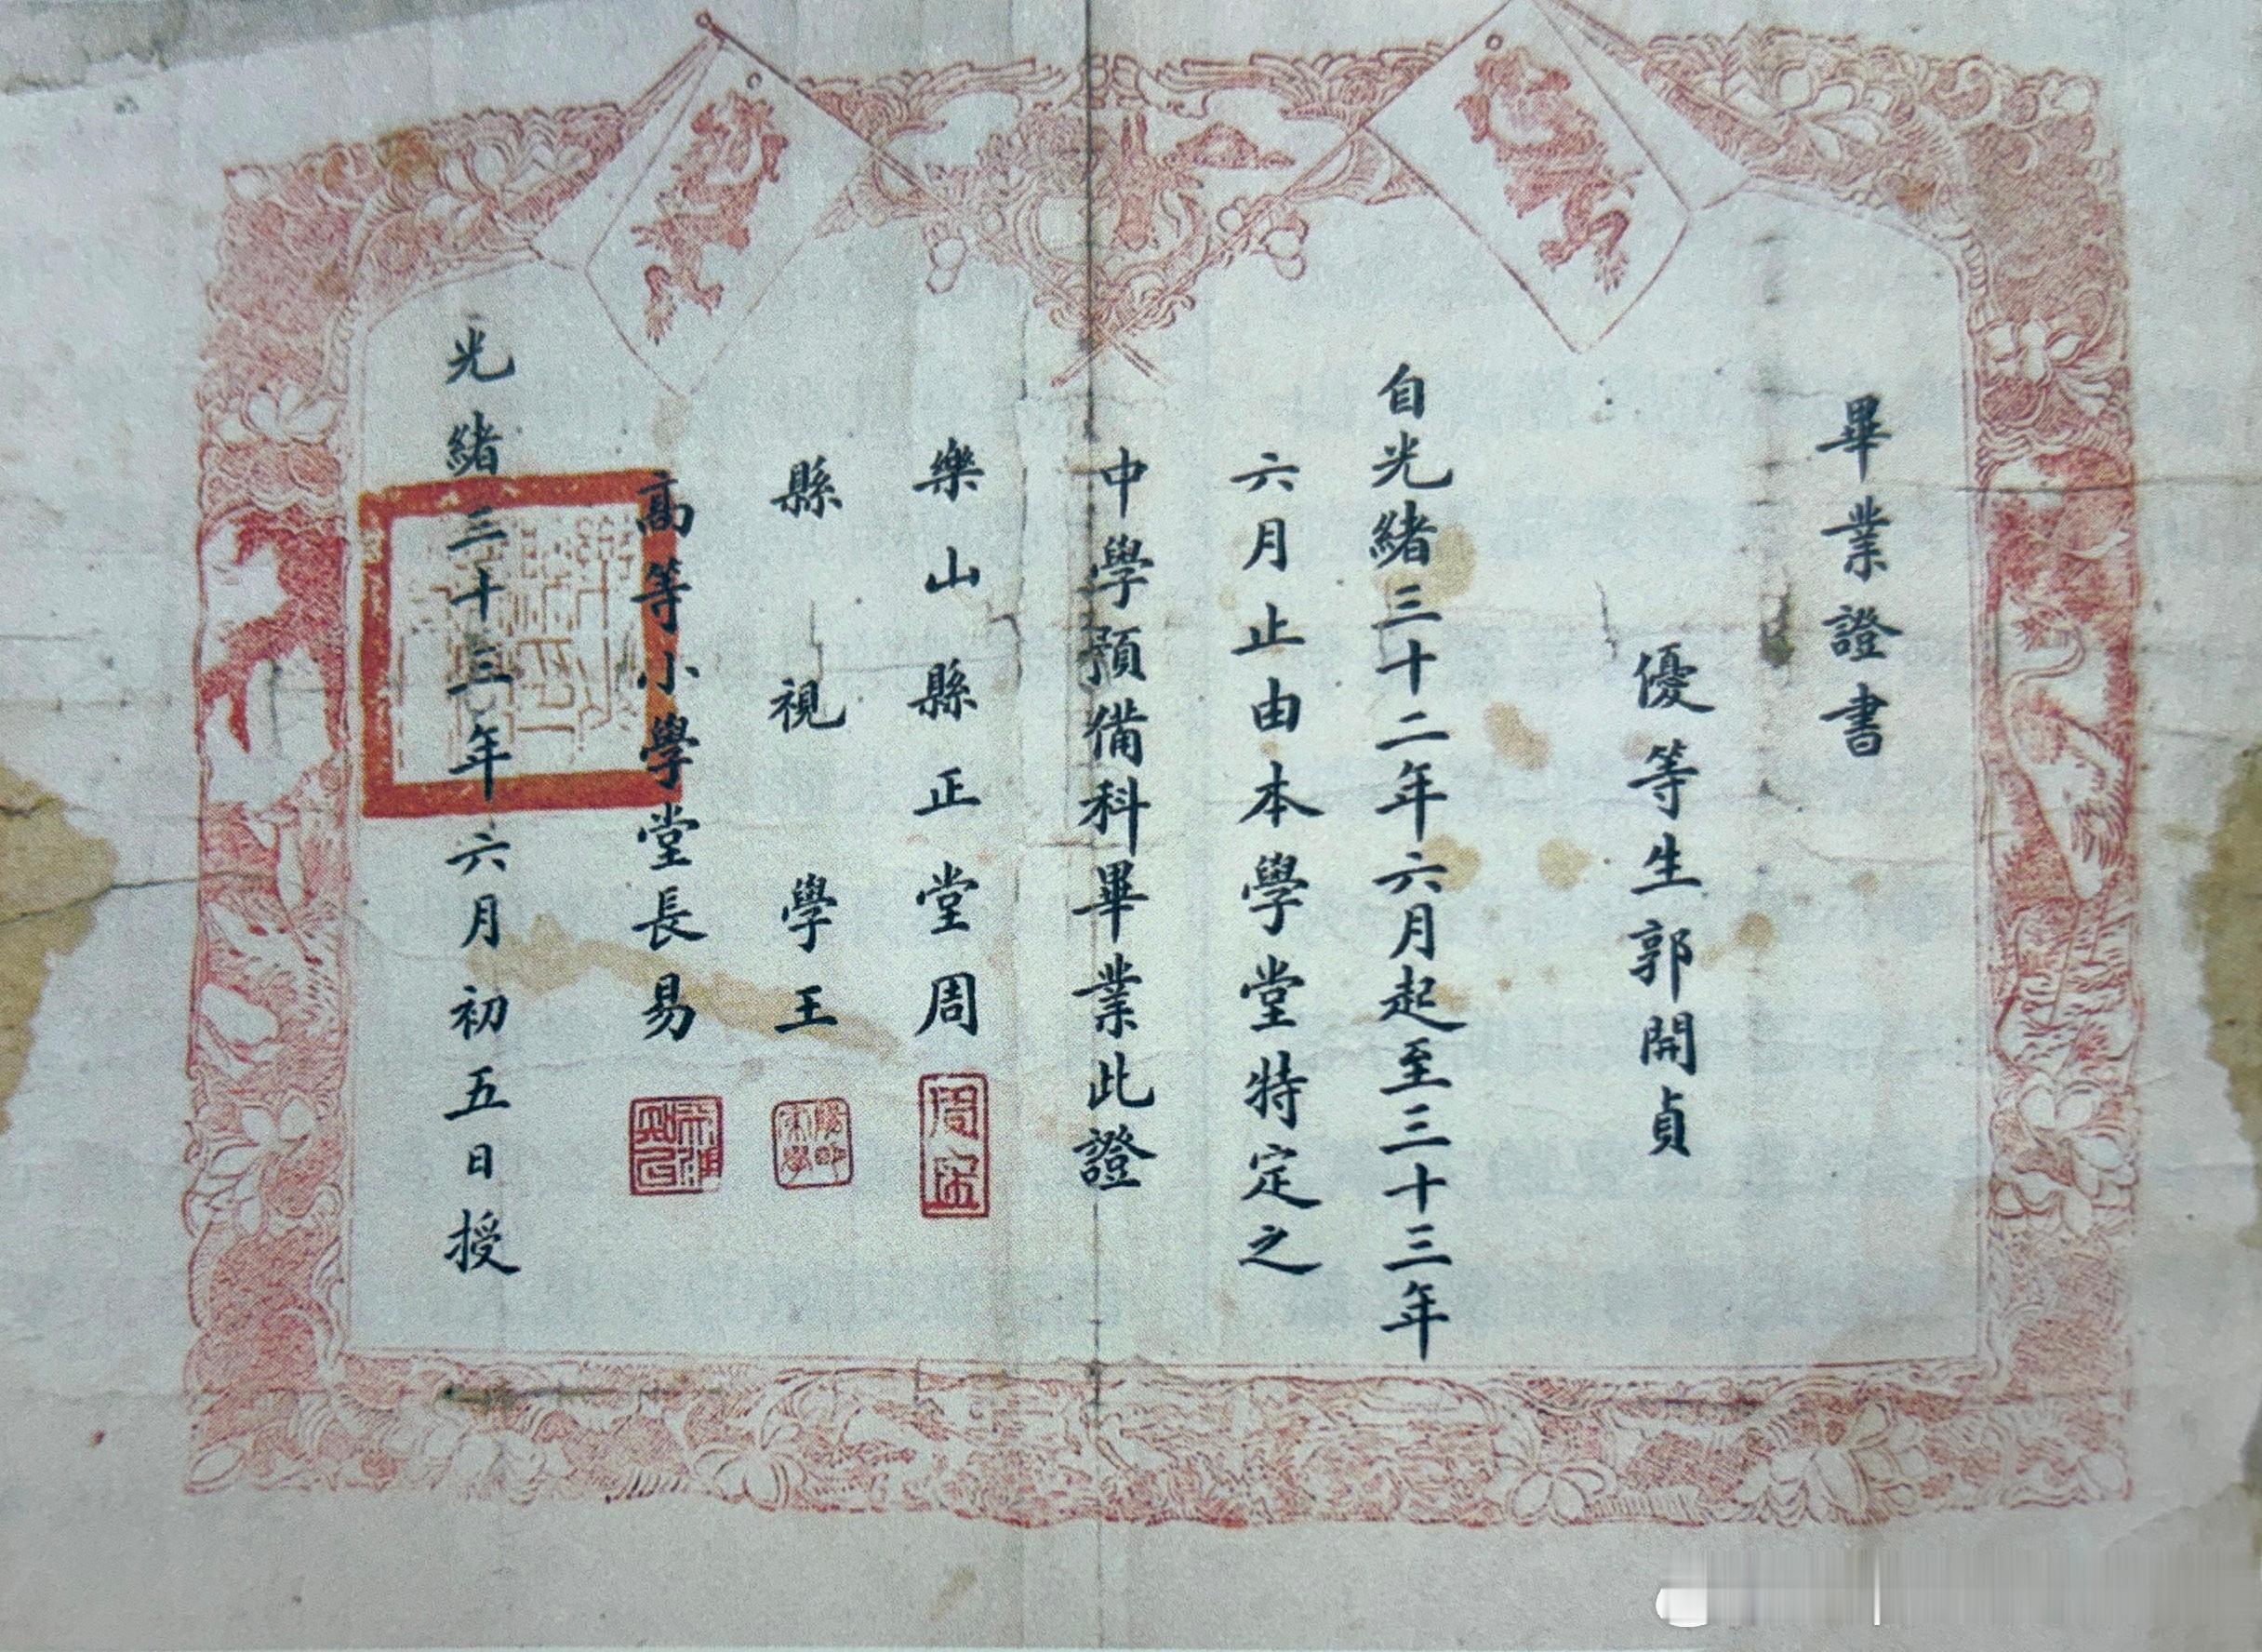 畢業證書
優等生郭開貞
自光緒三十二年六月起至三十三年
六月止由本學堂特定之
中學預備科畢業此證
樂山縣正堂周
縣視學王
高等小學堂長易
光緒三十三年六月初五日授